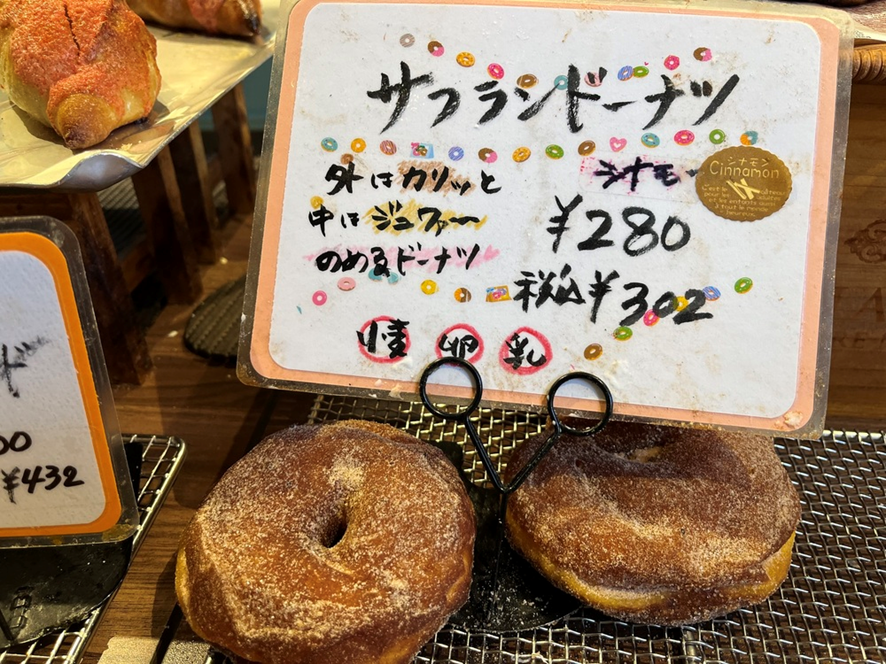 サフランドーナツ
外はカリッと
中はジュワァ〜
のめるドーナツ
シナモン
シナモン
Cinnamon
¥280
税込¥302
卵
乳
00
¥432